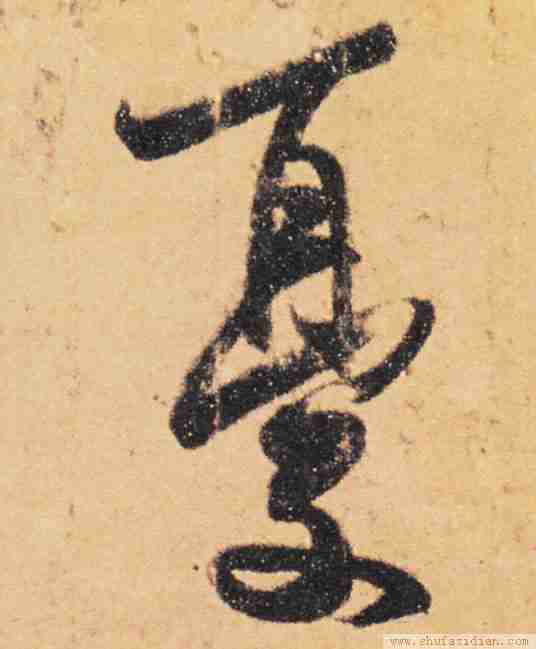 憂
www.shufazidian.com